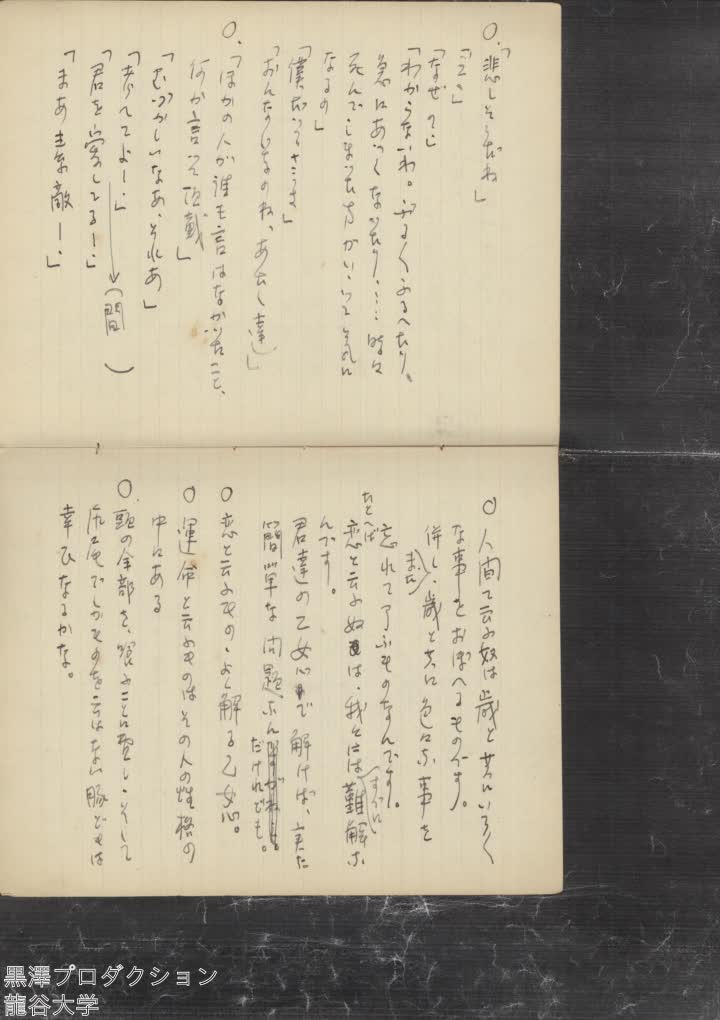 〇.「悲しそうだね」
「えゝ」
「なぜ て」
「わからないわ。ふるくふるへたり、
急にあつくなつたり……時々
死んでしまつた方がいゝつて気に
なるの」
「僕だつてさうさ」
「おんなじなのね、あたし達」
〇.「ほかの人が誰も言はなかつたこと、
何か言つて頂戴」
「むづかしいなあ、それあ」
「考へてよー.」→(間)
「君を愛してるー.」
「まあ素敵ー.」
〇 人間て云ふ奴は歳と共にいろく
な事をおぼへるものです。
併し、又歳と共に色々な事を
忘れて了ふものなんです。
たとへば
恋と云ふ奴は、我々には難解な
んです。
君達の乙女心で解けば、実に
簡単な問題なん
だけれども。
〇 恋と云ふもの・よく解る乙女心。
〇 運命と云ふものはその人の性格の
中にある
〇. 頭の全部を、喰ふことに費し・そして
尻尾でしかものを云はない豚どもは
幸ひなるかな。
黒澤プロダクション
龍谷大学